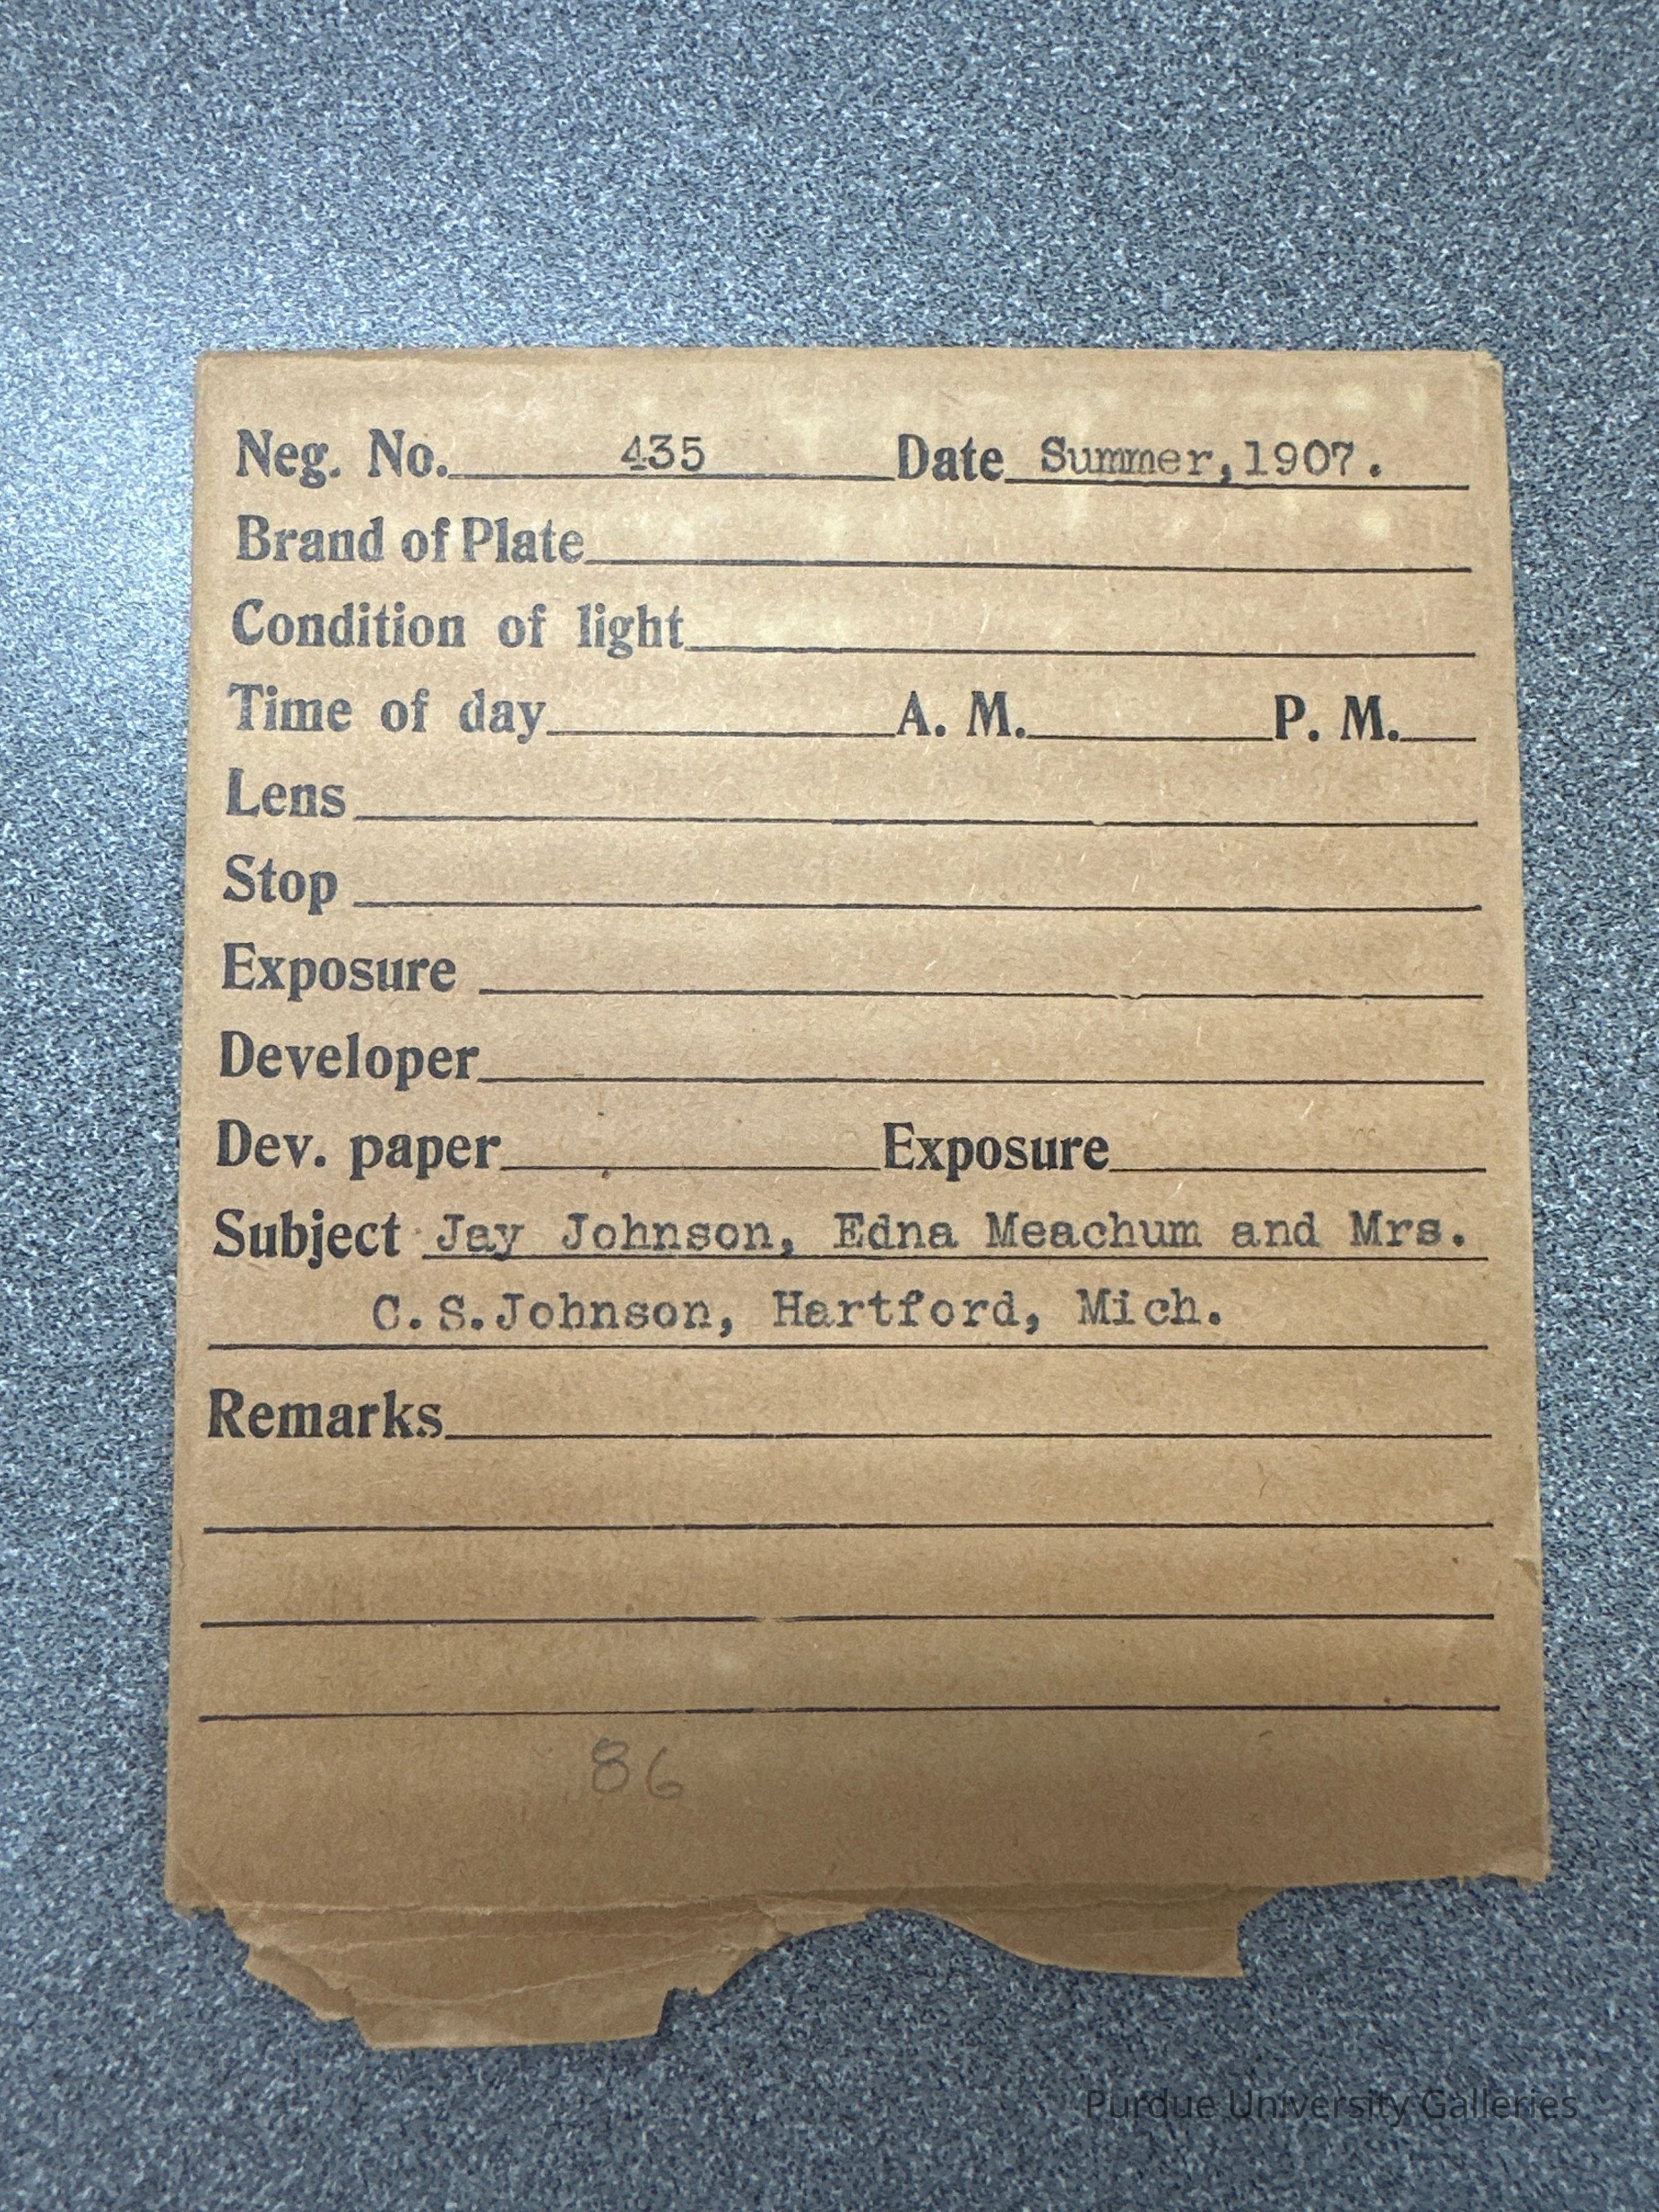 Neg. No. 435 Date Summer, 1907.
Brand of Plate
Condition of light
Time of day A. M. P. M.
Lens
Stop
Exposure
Developer
Dev. paper Exposure
Subject Jay Johnson, Edna Meachum and Mrs.
C. S. Johnson, Hartford, Mich.
Remarks
86
Purdue University Galleries